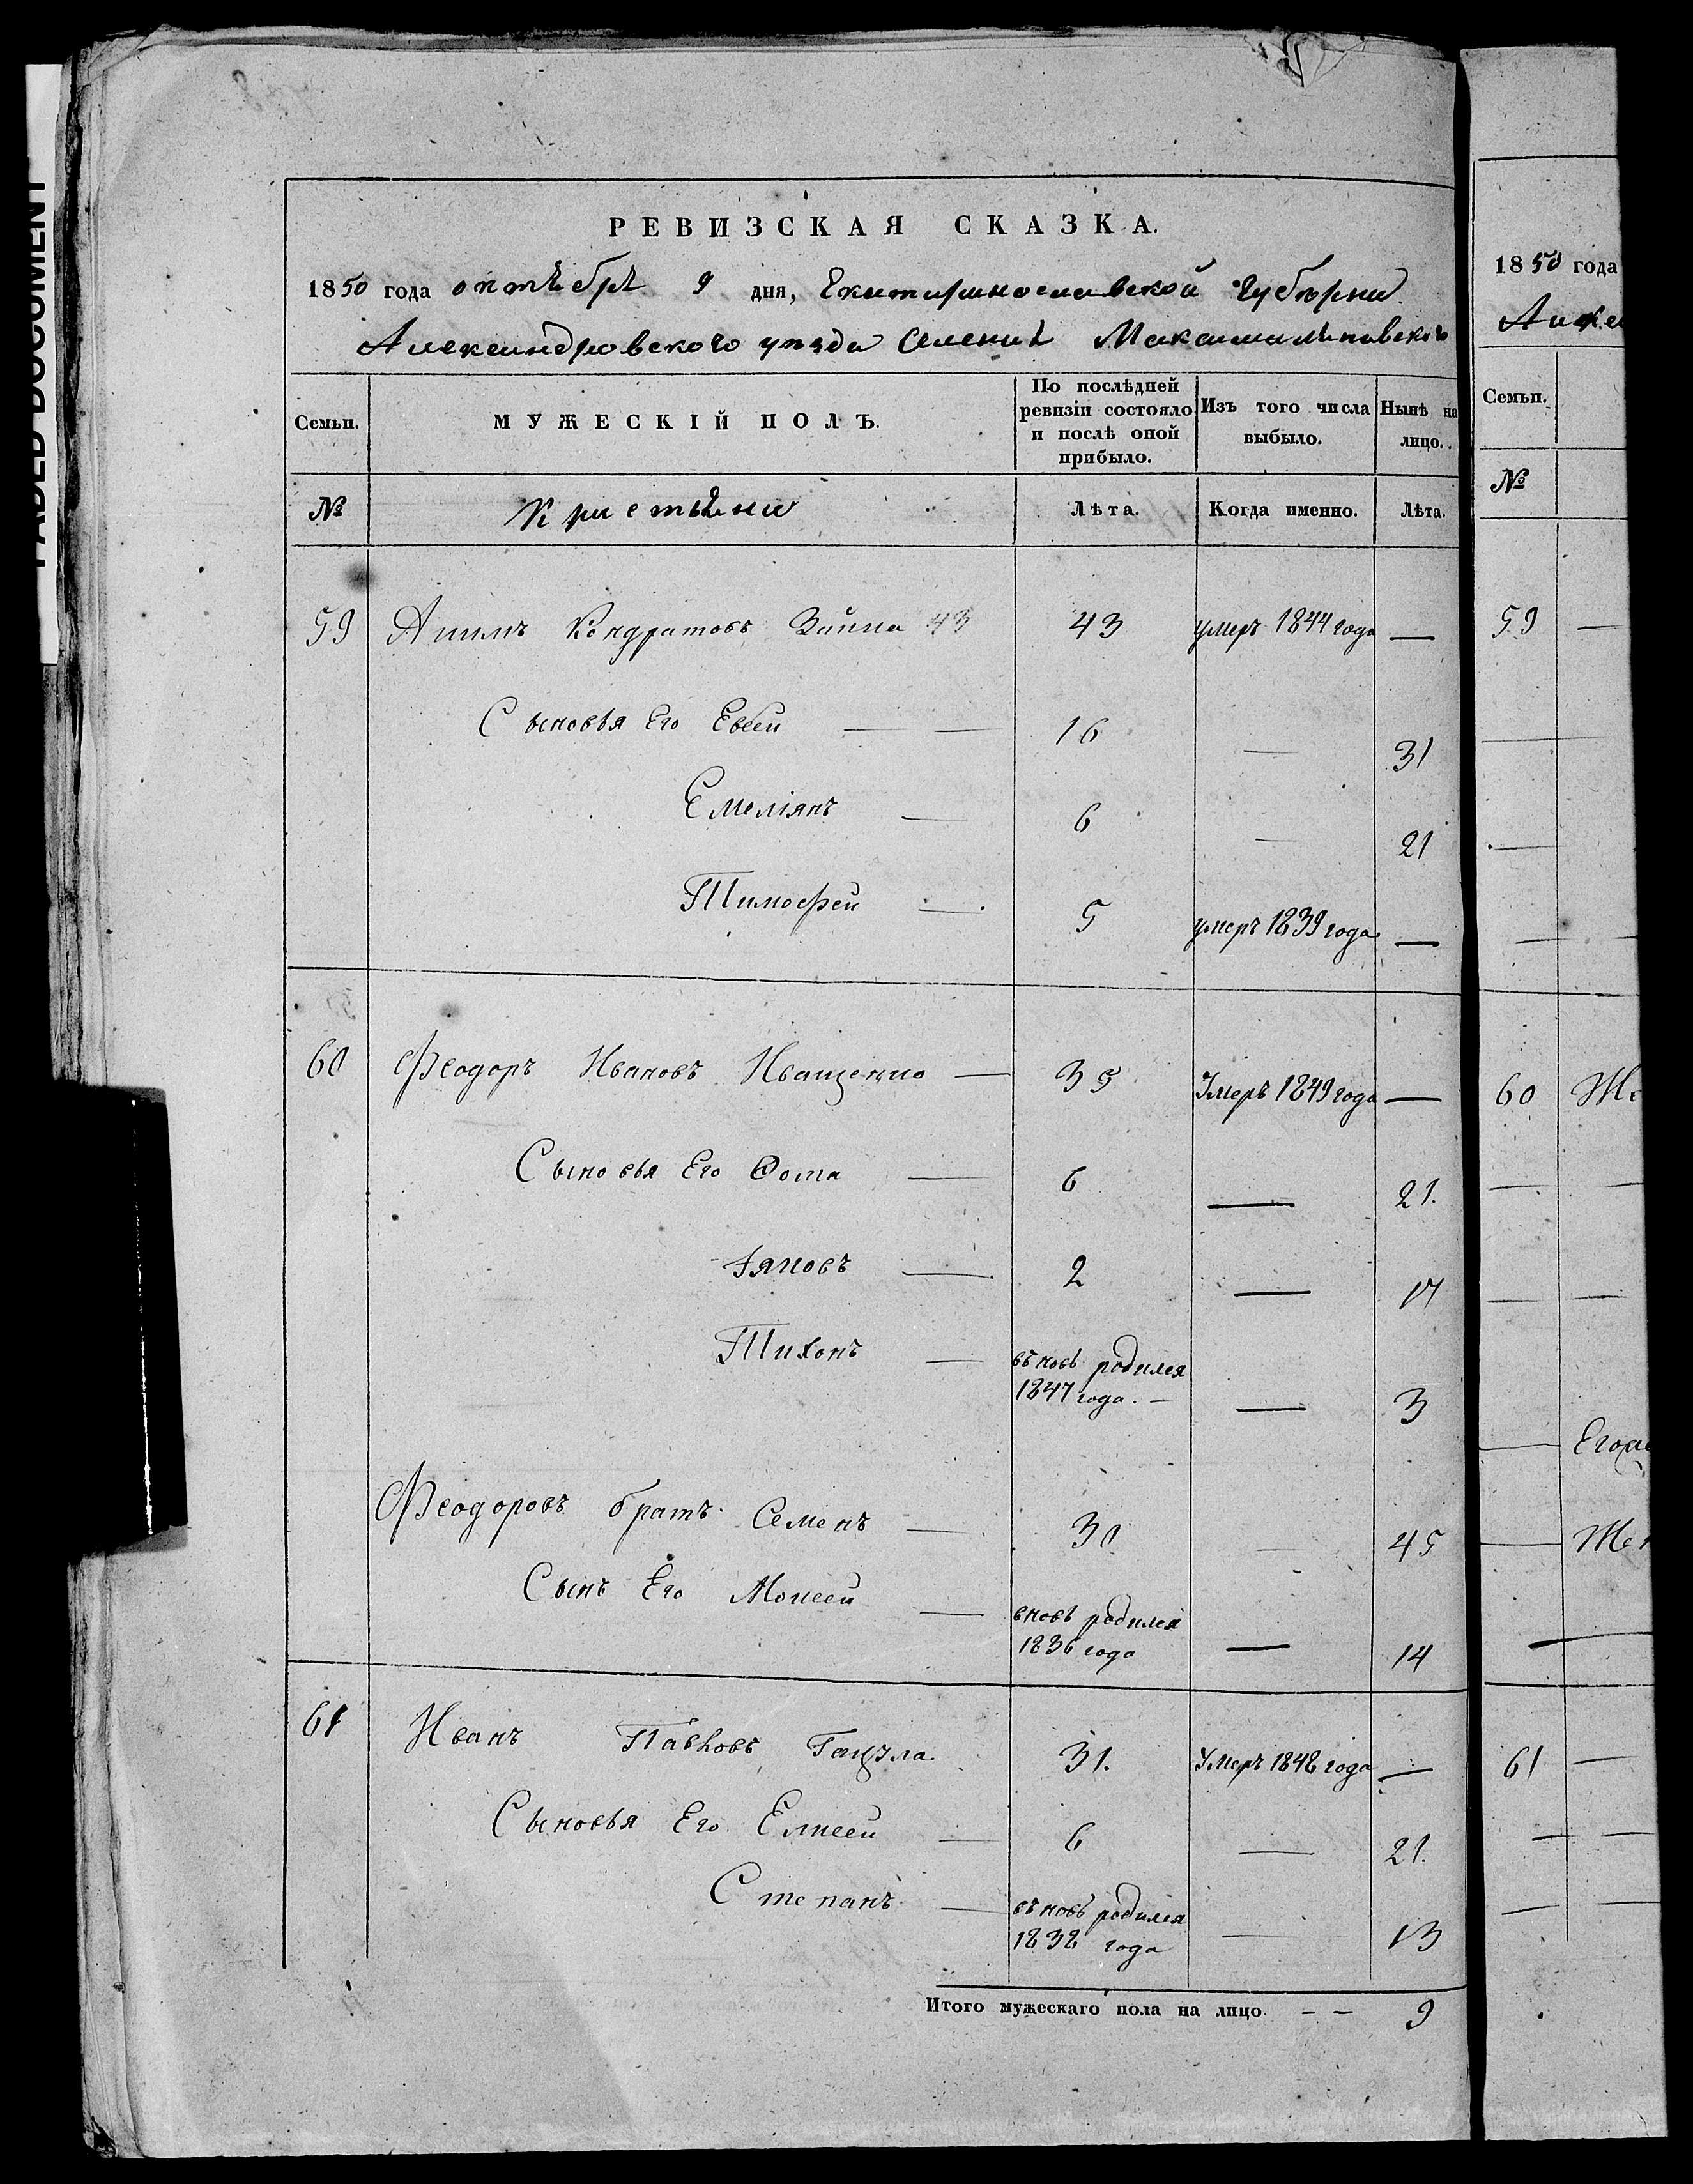 РЕВИЗСКАЯ СКАЗКА.
1850 года октября 9 дня, Екатеринославской губернии
Александровского уезда Селения Максимилиановского
Семьи. МУЖЕСКІЙ ПОЛЪ. По послѣдней ревизіи состояло и послѣ оной прибыло. Изъ того числа выбыло. Нынѣ на лицо.
№ Крестьяне Лѣта. Когда именно. Лѣта.
59 Акимъ Кондратовъ Заика 43 43 умеръ 1844 года —
Сыновья Его Евсей — — 16 — 31
Емеліянъ — 6 — 21
Тимофей — 5 умеръ 1839 года —
60 Феодоръ Ивановъ Иващенко — 35 Умеръ 1849 года —
Сыновья Его Фома — 6 — 21.
Яковъ — 2 — 17
Тихонъ — въновь родился 1847 года. — — 3
Феодоровъ братъ Семенъ — 30 — 45
Сынъ Его Моисей — вновь родился 1836 года — 14
61 Иванъ Павловъ 31. Умеръ 1848 года —
Сыновья Его Елисей — 6 — 21.
Степанъ — въновь родился 1838 года — 13
Итого мужескаго пола на лицо — — 9
1850 года
Алек
Семьи.
№
59 —
60 Же
Его
Жен
61 —
FADED DOCUMENT